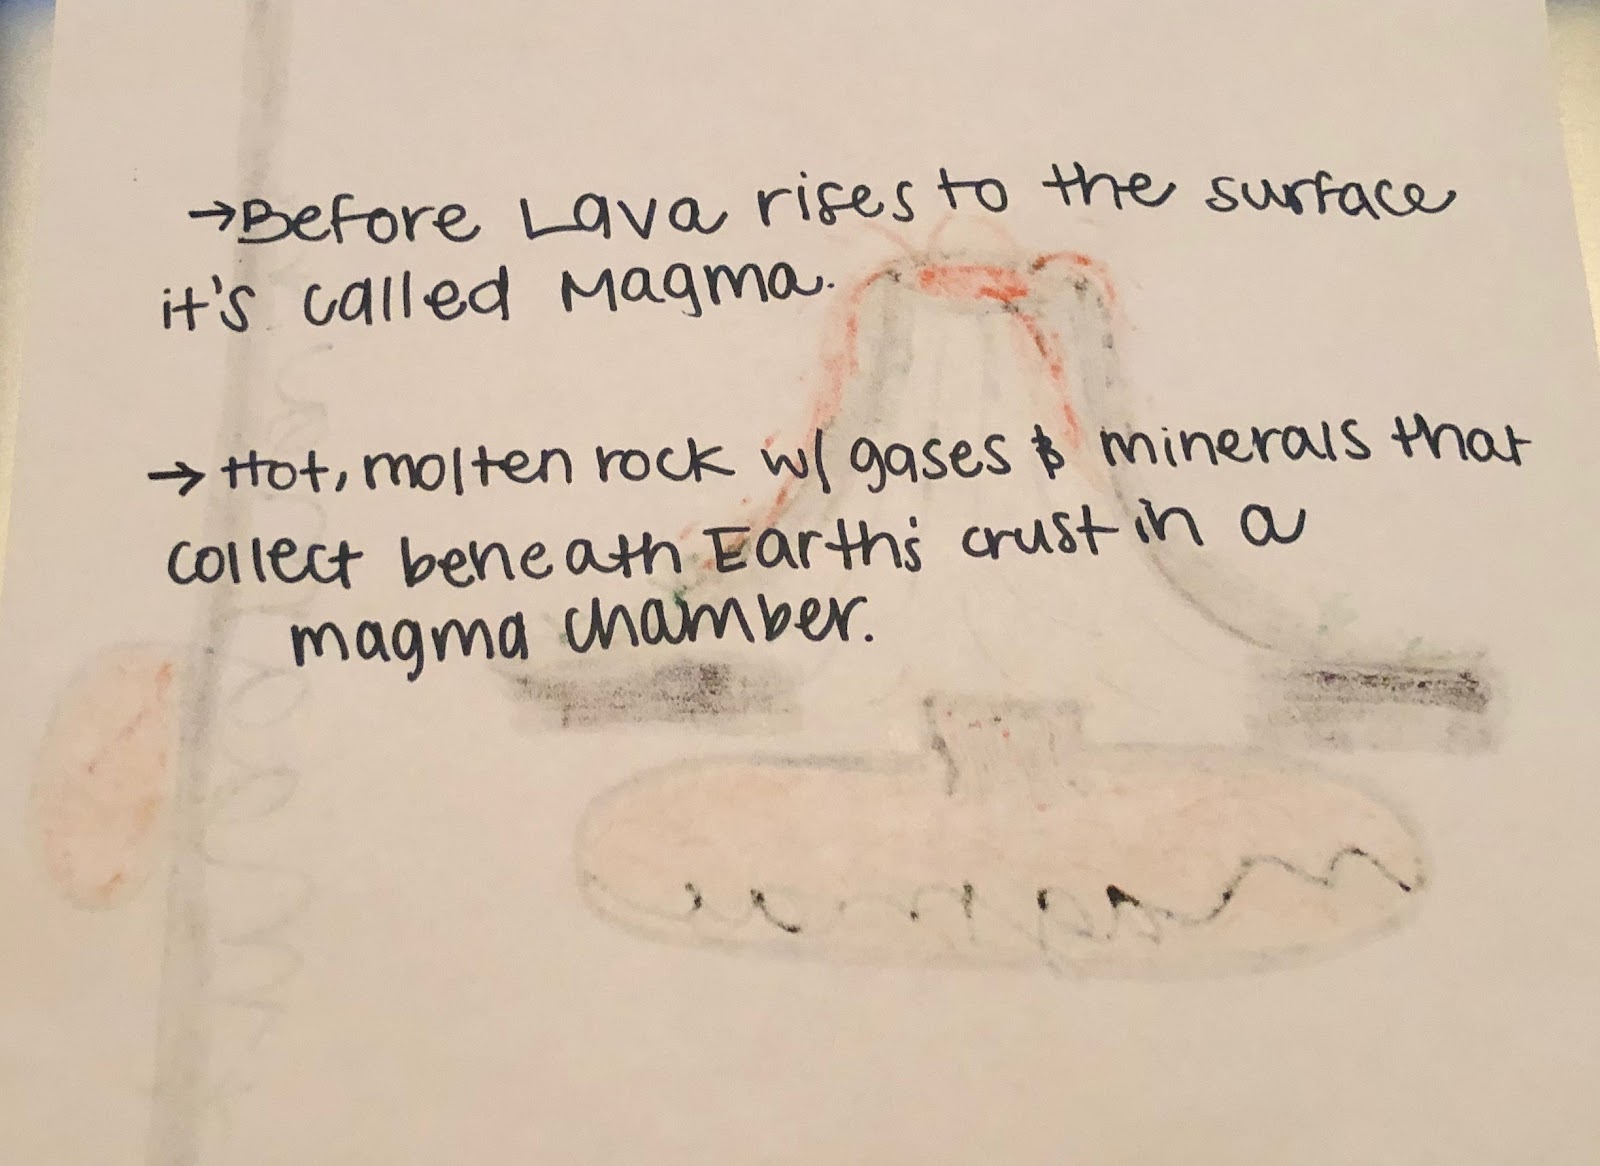 →Before Lava rises to the surface
it's called Magma.
→ Hot, molten rock w/ gases & minerals that
collect beneath Earth's crust in a
magma chamber.